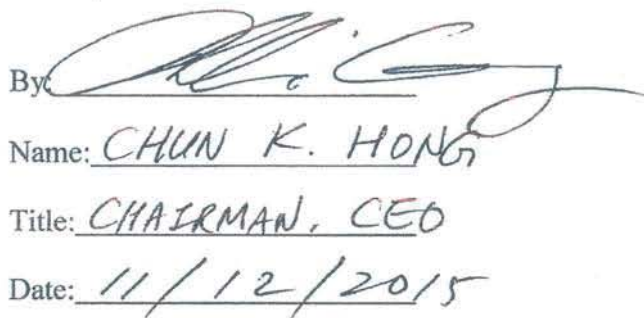 By:
Name: CHUN K. HONG
Title: CHAIRMAN, CEO
Date: 11/12/2015